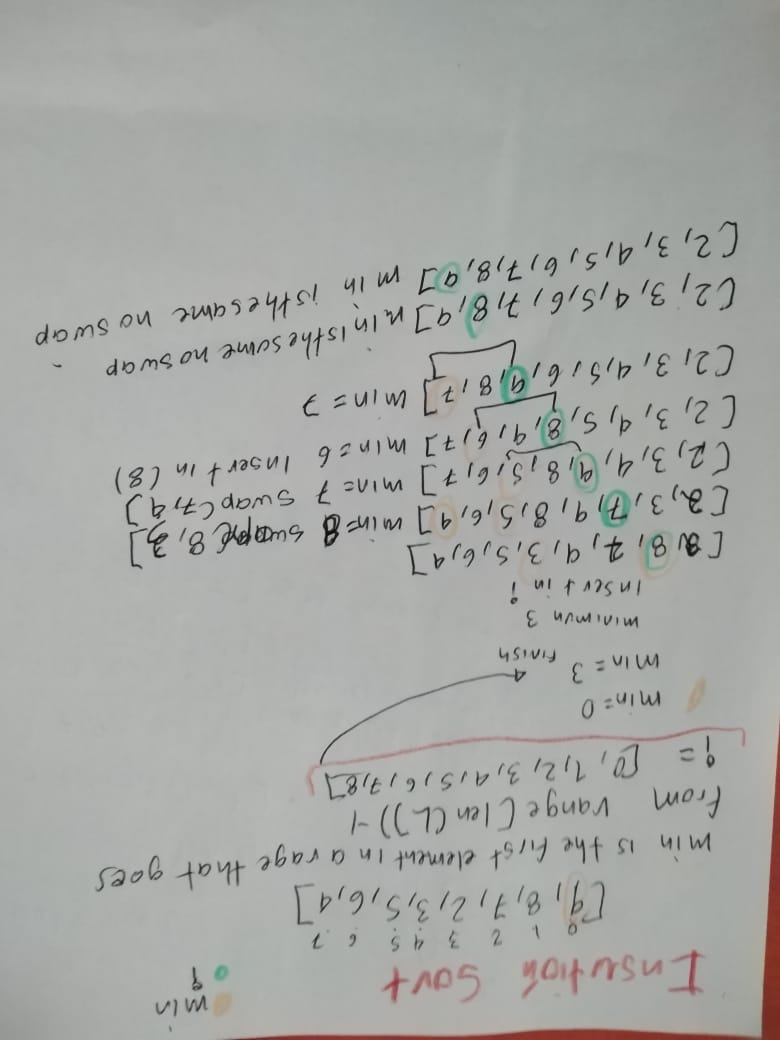 min
i
Insrtion Sort
0 1 2 3 4 5 6 7
[9, 8, 7, 2, 3, 5, 6, 4]
min is the first element in a rage that goes
from range (len(L))-1
i = [0, 1, 2, 3, 4, 5, 6, 7, 8]
min=0
min = 3 finish
minimun 3
insert in i
[2, 8, 7, 9, 3, 5, 6, 4]
[2, 3, 7, 9, 8, 5, 6, 4] min=8 swap(8, 3]
[2, 3, 4, 9, 8, 5, 6, 7] min=7 swap(7, 4]
[2, 3, 4, 5, 8, 9, 6, 7] min=6 insert in (8)
[2, 3, 4, 5, 6, 9, 8, 7] min = 7
[2, 3, 4, 5, 6, 7, 8, 9] min is the same no swap
[2, 3, 4, 5, 6, 7, 8, 9] min is the same no swap